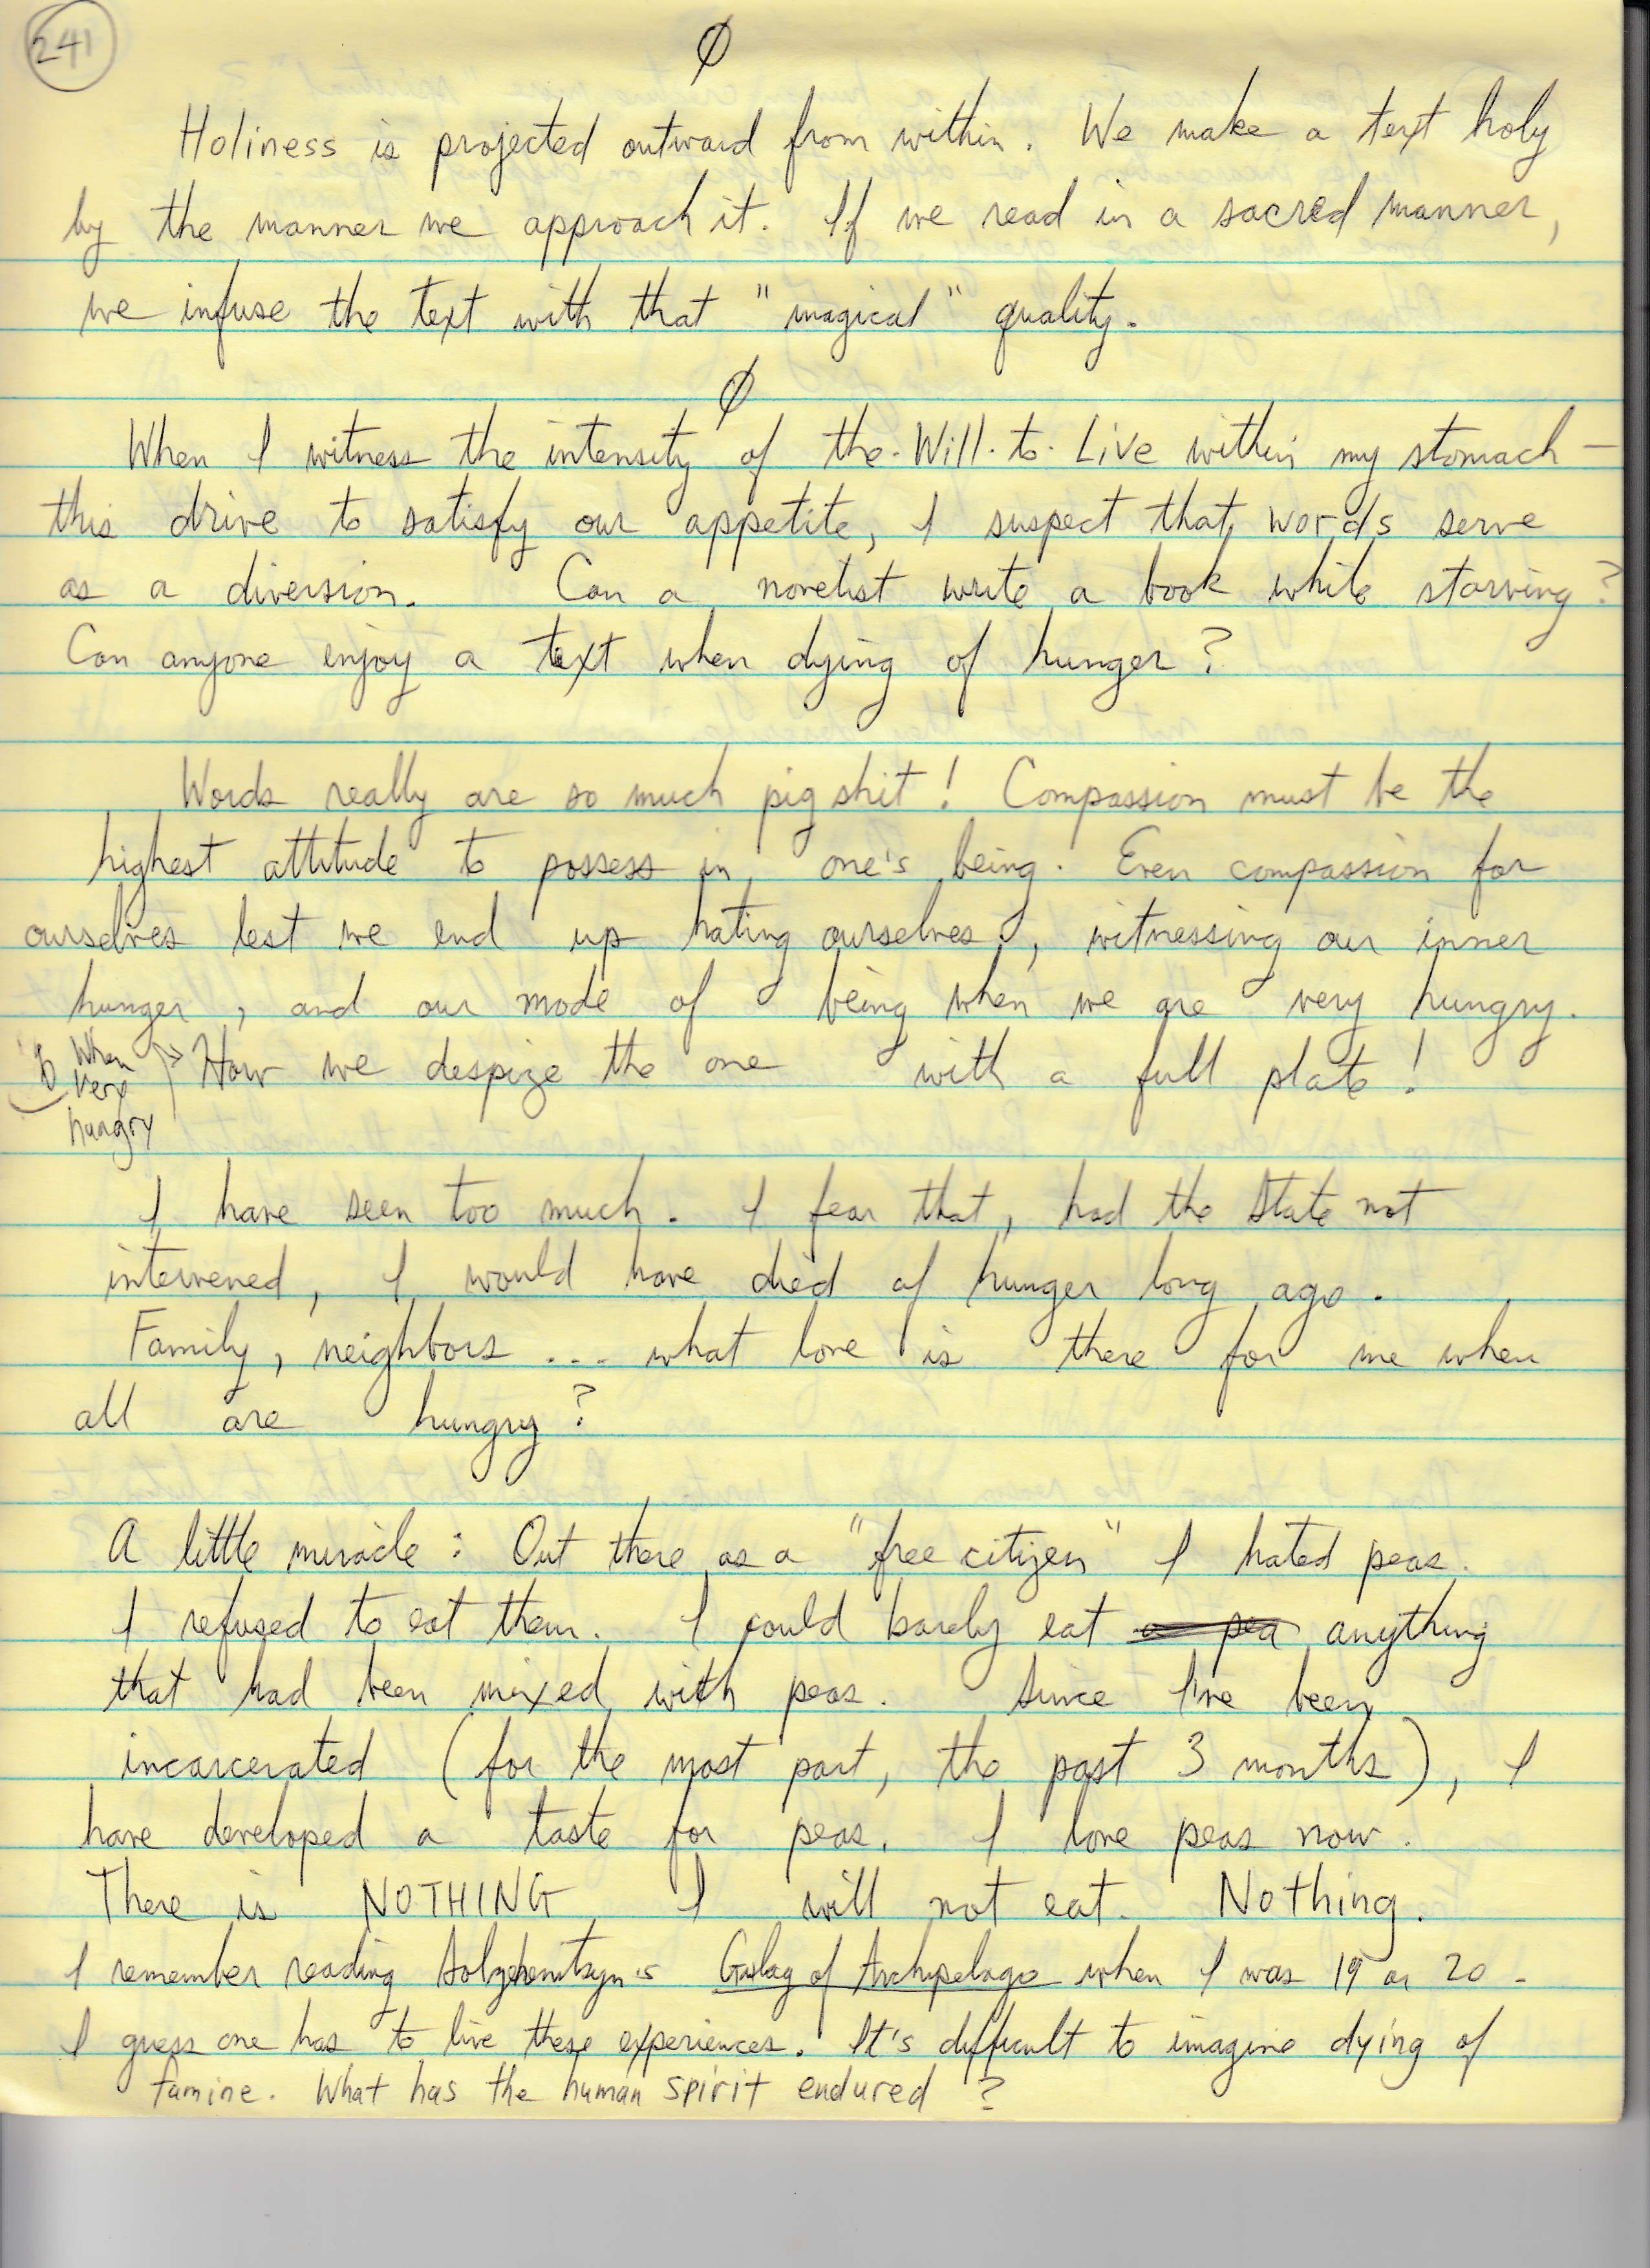 241
Ø
Holiness is projected outward from within. We make a text holy
by the manner we approach it. If we read in a sacred manner,
we infuse the text with that "magical" quality.
Ø
When I witness the intensity of the·Will·to·Live within my stomach —
this drive to satisfy our appetite, I suspect that words serve
as a diversion. Can a novelist write a book while starving?
Can anyone enjoy a text when dying of hunger?
Words really are so much pig shit! Compassion must be the
highest attitude to possess in one's being. Even compassion for
ourselves lest we end up hating ourselves, witnessing our inner
hunger, and our mode of being when we are very hungry.
When very hungry → How we despize the one with a full plate!
I have seen too much. I fear that, had the State not
intervened, I would have died of hunger long ago.
Family, neighbors ... what love is there for me when
all are hungry?
A little miracle: Out there as a "free citizen" I hated peas.
I refused to eat them. I could barely eat a pea anything
that had been mixed with peas. Since I've been
incarcerated (for the most part, the past 3 months), I
have developed a taste for peas. I love peas now.
There is NOTHING I will not eat. Nothing.
I remember reading Solzhenitsyn's Gulag of Archipelago when I was 19 or 20.
I guess one has to live these experiences. It's difficult to imagine dying of
famine. What has the human spirit endured?